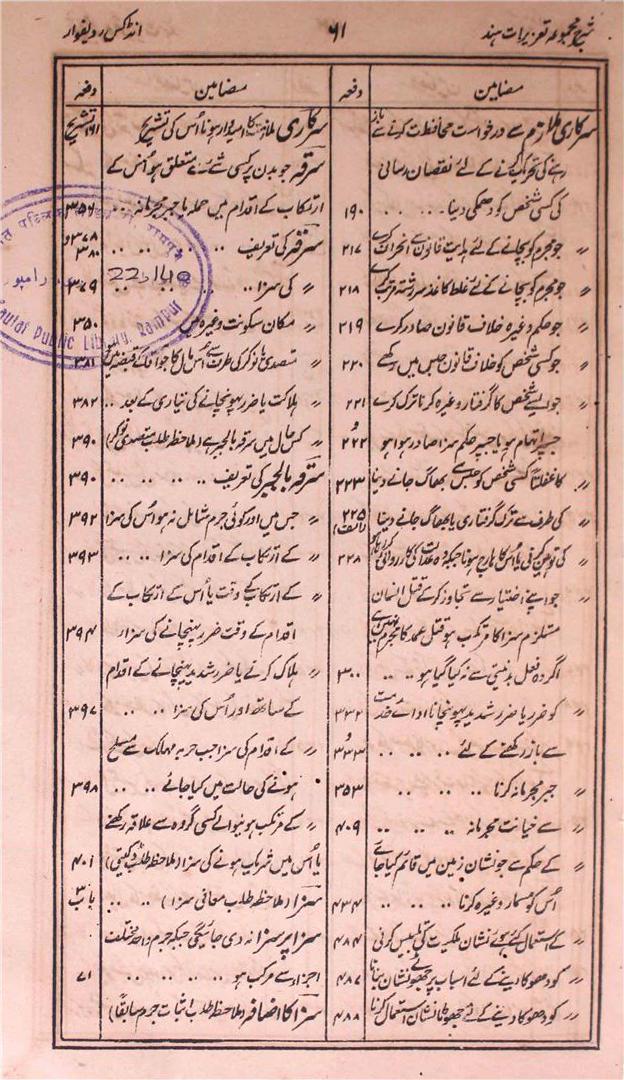 شرح مجموعہ تعزیرات ہند
۶۱
انڈکس ردیفوار
مضامین
دفعہ
سرکاری ملازم سے درخواست محافظت کرنے سے باز
رہنے کی تحریک کرنے کے لئے نقصان رسانی
کی کسی شخص کو دھمکی دینا .. .. .. ۱۹۰
〃 جو مجرم کو بچانے کے لئے ہدایت قانون سے انحراف کرے ۲۱۷
〃 جو مجرم کو بچانے کے لئے غلط کاغذ سررشتہ مرتب کرے ۲۱۸
〃 جو حکم وغیرہ خلاف قانون صادر کرے ۲۱۹
〃 جو کسی شخص کو خلاف قانون حبس میں رکھے ۲۲۰
〃 جو ایسے شخص کا گرفتار وغیرہ کرنا ترک کرے ۲۲۱
جسپر اتہام ہو یا جسپر حکم سزا صادر ہوا ہو و ۲۲۲
〃 کا غفلتاً کسی شخص کو حبس سے بھاگ جانے دینا ۲۲۳
〃 کی طرف سے ترک گرفتاری یا بھاگ جانے دینا ۲۲۵ (الف)
〃 کی توہین کرنی یا اُس کا ہارج ہونا جبکہ وہ عدالت کی کارروائی کر رہا ہو ۲۲۸
〃 جو اپنے اختیار سے تجاوز کر کے قتل انسان
مستلزم سزا کا مرتکب ہو قتل عمد کا مجرم نہیں ہے
اگر وہ فعل بدنیتی سے نہ کیا گیا ہو .. .. ۳۰۰
〃 کو ضرر یا ضرر شدید پہونچانا ادائے خدمت ۳۳۲
سے باز رکھنے کے لئے .. .. .. .. و ۳۳۳
〃 جبر مجرمانہ کرنا .. .. .. .. ۳۵۳
〃 سے خیانت مجرمانہ .. .. .. .. ۴۰۹
〃 کے حکم سے جو نشان زمین میں قائم کیا جائے
اُس کو مسمار وغیرہ کرنا .. .. .. .. ۴۳۴
〃 کے استعمال کئے ہوئے نشان ملکیت کی تلبیس کرنی ۴۸۴
〃 کو دھوکا دینے کے لئے اسباب پر جھوٹے نشان بنانا ۴۸۷
〃 کو دھوکا دینے کے لئے جھوٹا نشان استعمال کرنا ۴۸۸
مضامین
دفعہ
سرکاری ملازمت کا امیدوار ہونا اُس کی تشریح ۱۶۱ تشریح
سرقہ جو بدن پر کسی شے سے متعلق ہو اُس کے
ارتکاب کے اقدام میں حملہ یا جبر مجرمانہ .. ۳۵۶
سرقہ کی تعریف .. .. .. .. ۳۷۸ و ۳۸۰
〃 کی سزا .. .. .. .. ۳۷۹
〃 مکان سکونت وغیرہ میں ۳۸۰
〃 متصدی یا نوکر کی طرف سے اُس مال کا جو آقا کے قبضہ میں ہے ۳۸۱
〃 ہلاکت یا ضرر پہونچانے کی تیاری کے بعد .. ۳۸۲
〃 کس حال میں سرقہ بالجبر ہے (ملاحظہ طلب متصدی نوکر) ۳۹۰
سرقہ بالجبر کی تعریف .. .. .. .. ۳۹۰
〃 جس میں اور کوئی جرم شامل نہ ہو اُس کی سزا ۳۹۲
〃 کے ارتکاب کے اقدام کی سزا .. .. ۳۹۳
〃 کے ارتکاب کے وقت یا اُس کے ارتکاب کے
اقدام کے وقت ضرر پہنچانے کی سزا ۳۹۴
〃 ہلاک کرنے یا ضرر شدید پہنچانے کے اقدام
کے ساتھ اور اُس کی سزا .. .. ۳۹۷
〃 کے اقدام کی سزا جب حربہ مہلک سے مسلح
ہونے کی حالت میں کیا جائے .. .. ۳۹۸
〃 کے مرتکب ہونیوالے کسی گروہ سے علاقہ رکھنے
یا اُس میں شریک ہونے کی سزا (ملاحظہ طلب ڈکیتی) ۴۰۱
سزا (ملاحظہ طلب معافی سزا) .. .. باب ۳
سزا پر سزا نہ دی جائیگی جبکہ جرم واحد مختلف
اجزاء سے مرکب ہو .. .. .. .. ۷۱
سزا کا اضافہ (ملاحظہ طلب اثبات جرم سابقاً)
22140
رامپور
Saulat Public Library, Rampur